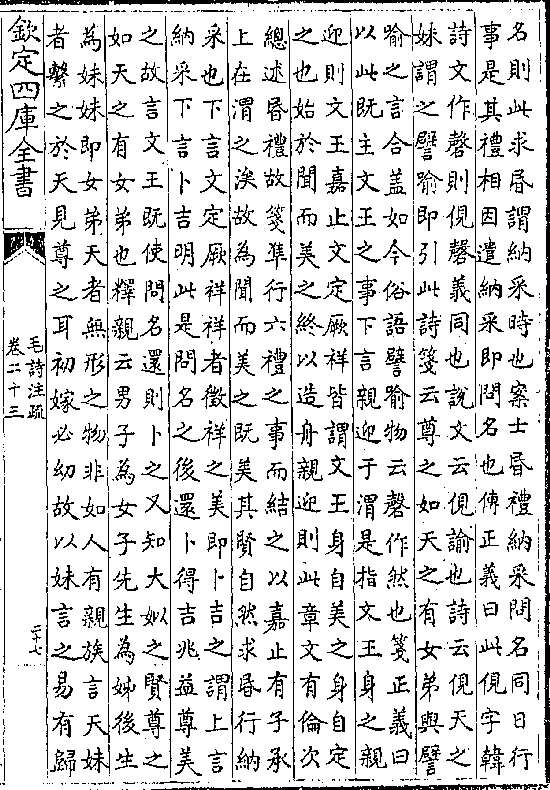 名則此求昏謂納采時也案士昏禮納采問名同日行
事是其禮相因遣納采即問名也傳正義曰此俔字韓
詩文作磬則俔磬義同也說文云俔諭也詩云俔天之
妹謂之譬喻即引此詩箋云尊之如天之有女弟與譬
喻之言合蓋如今俗語譬喻物云磬作然也箋正義曰
以此既主文王之事下言親迎于渭是指文王身之親
迎則文王嘉止文定厥祥皆謂文王身自美之身自定
之也始於聞而美之終以造舟親迎則此章文有倫次
總述昏禮故箋準行六禮之事而結之以嘉止有子承
上在渭之涘故為聞而美之既美其賢自然求昏行納
采也下言文定厥祥祥者徵祥之美即卜吉之謂上言
納采下言卜吉明此是問名之後還卜得吉兆益尊美
之故言文王既使問名還則卜之又知大姒之賢尊之
如天之有女弟也釋親云男子為女子先生為姊後生
為妹妹即女弟天者無形之物非如人有親族言天妹
者繫之於天見尊之耳初嫁必幼故以妹言之易有歸
欽定四庫全書
毛詩注疏
卷二十三
二十七